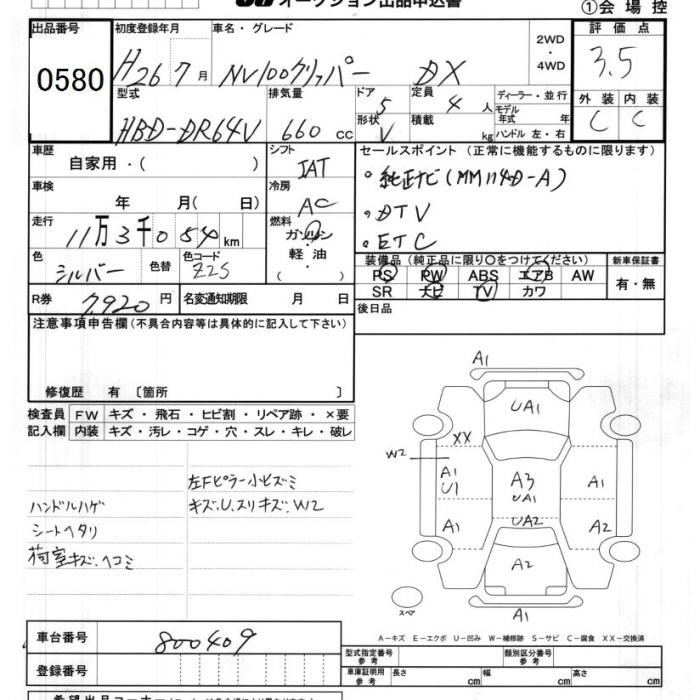 オークション出品申込書
①会場控
出品番号
0580
初度登録年月
H26 7月
車名・グレード
NV100クリッパー DX
2WD
・
4WD
評価点
3.5
型式
HBD-DR64V
排気量
660 cc
ドア
5
形状
V
定員
4人
積載
kg
ディーラー・並行
モデル年式 年
ハンドル 左・右
外装 内装
C C
車歴
自家用・( )
シフト
IAT
セールスポイント (正常に機能するものに限ります)
・純正ナビ(MM114D-A)
・DTV
・ETC
車検
年 月( 日)
冷房
AC
走行
11万3千054km
燃料
ガソリン
・
軽油
( )
色
シルバー
色替
色コード
Z2S
装備品 (純正品に限り○をつけてください)
PS PW ABS エアB AW
SR ナビ TV カワ
新車保証書
有・無
R券
7,920円
名変通知期限 月 日
後日品
注意事項申告欄 (不具合内容等は具体的に記入して下さい)
修復歴 有 〔箇所 〕
検査員記入欄
FW キズ・飛石・ヒビ割・リペア跡・×要
内装 キズ・汚レ・コゲ・穴・スレ・キレ・破レ
左Fピラー小ヒズミ
キズ.U.スリキズ.W2
ハンドルハゲ
シートヘタリ
荷室キズ.ヘコミ
A1
UA1
XX
W2
A1
U1
A3
UA1
A1
A1
UA2
A2
A2
A1
スペア
A−キズ E−エクボ U−凹み W−補修跡 S−サビ C−腐食 XX−交換済
車台番号
800409
登録番号
型式指定番号
参考
類別区分番号
参考
車庫証明用
参考
長さ cm
幅 cm
高さ cm